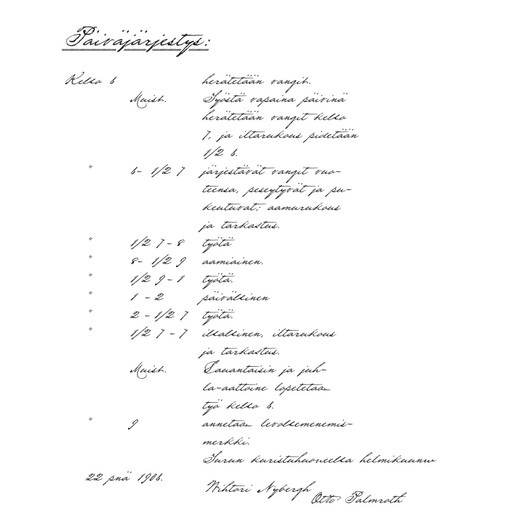 Päiväjärjestys:
Kello 6 herätetään vangit.
Muist. Työstä vapaina päivinä
herätetään vangit kello
7, ja iltarukous pidetään
1/2 6.
" 6- 1/2 7 järjestävät vangit vuo-
teensa, peseytyvät ja pu-
keutuvat; aamurukous
ja tarkastus.
" 1/2 7 - 8 työtä
" 8- 1/2 9 aamiainen.
" 1/2 9 - 1 työtä.
" 1 - 2 päivällinen
" 2 - 1/2 7 työtä.
" 1/2 7 - 7 illallinen, iltarukous
ja tarkastus.
Muist. Lauantaisin ja juh-
la-aattoina lopetetaan
työ kello 6.
" 9 annetaan levollemenemis-
merkki.
Turun kuristushuoneella helmikuun
22 pnä 1906.
Wihtori Nybergh
Otto Palmroth